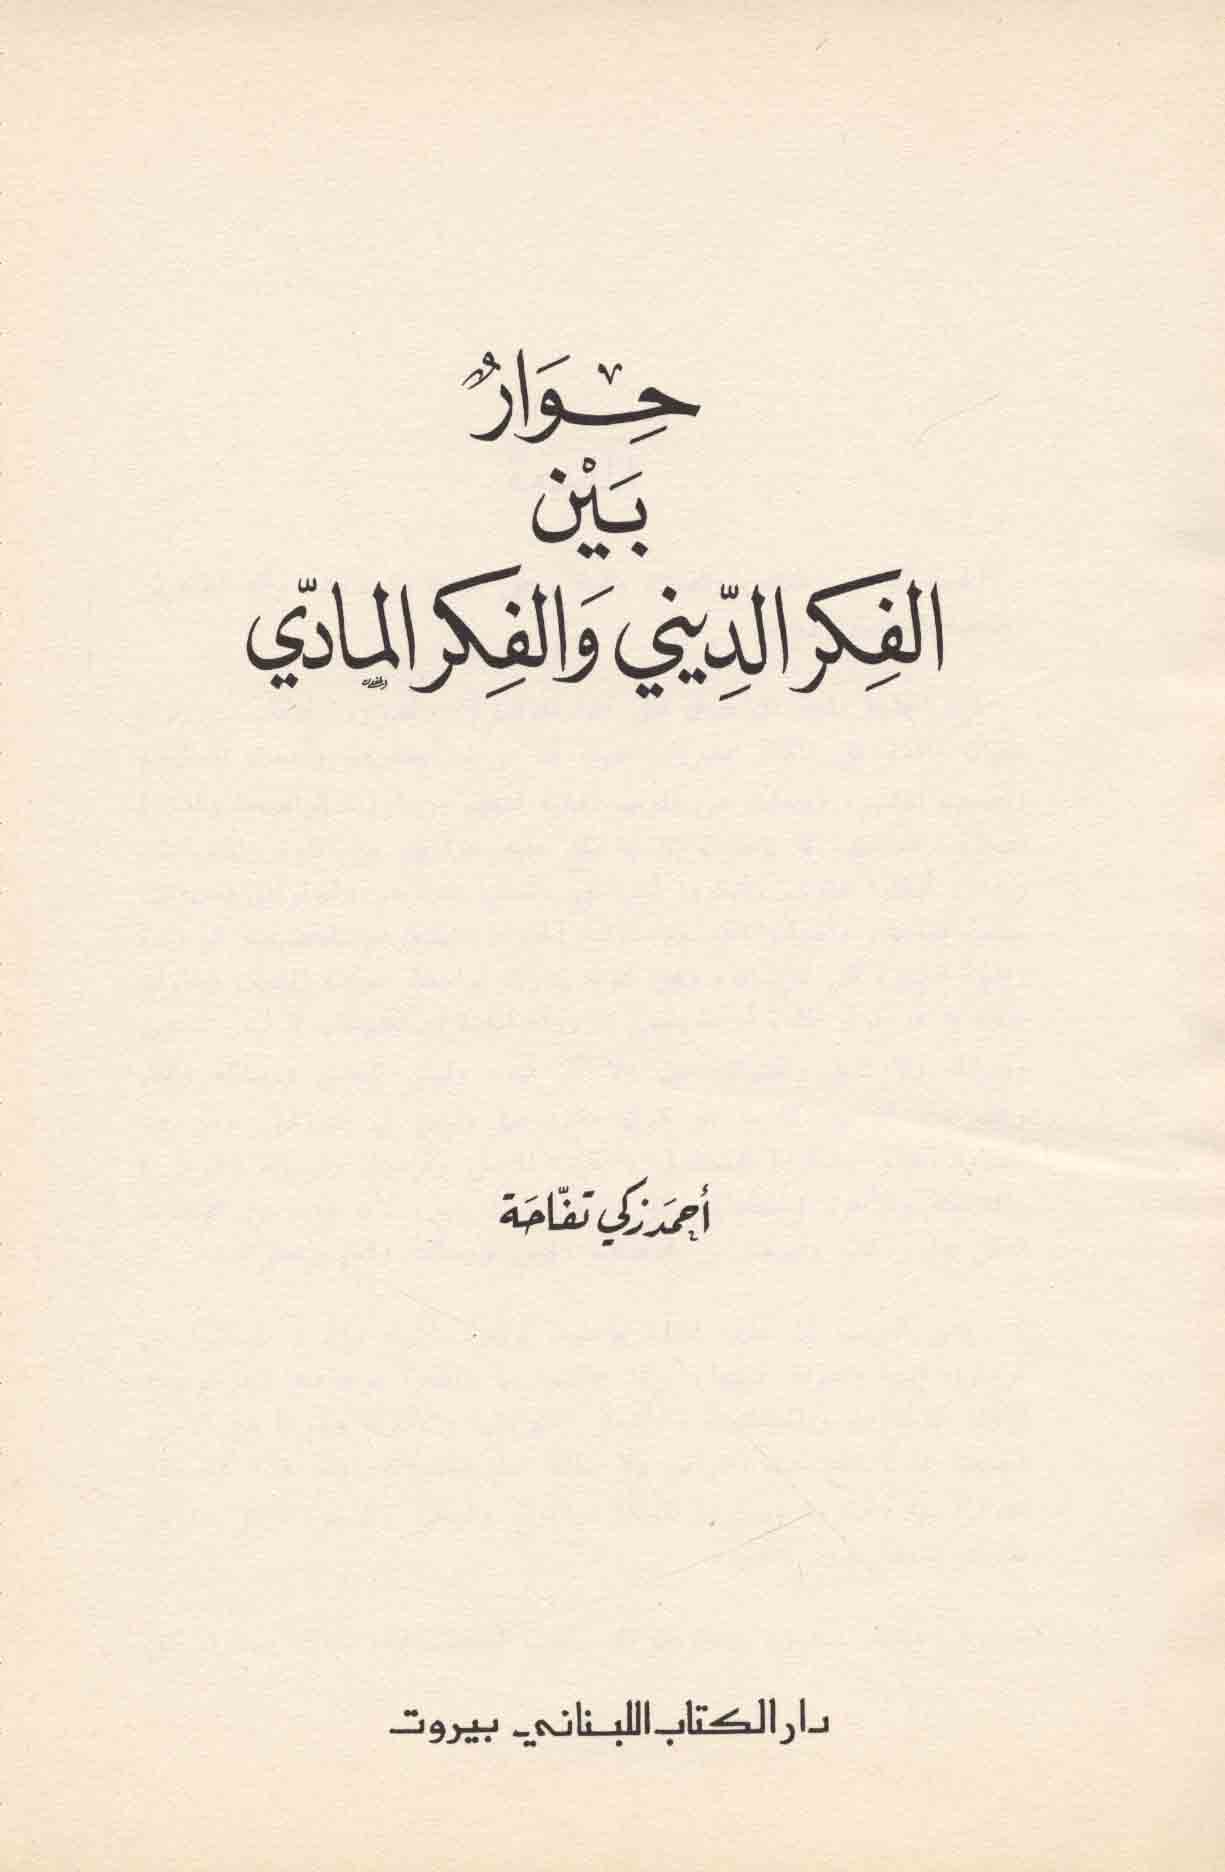 حِوَارٌ
بَيْن
الفِكر الدِّيني وَالفِكر المادّي
أحمَد زكي تفّاحَة
دار الكتاب اللبناني ـ بيروت